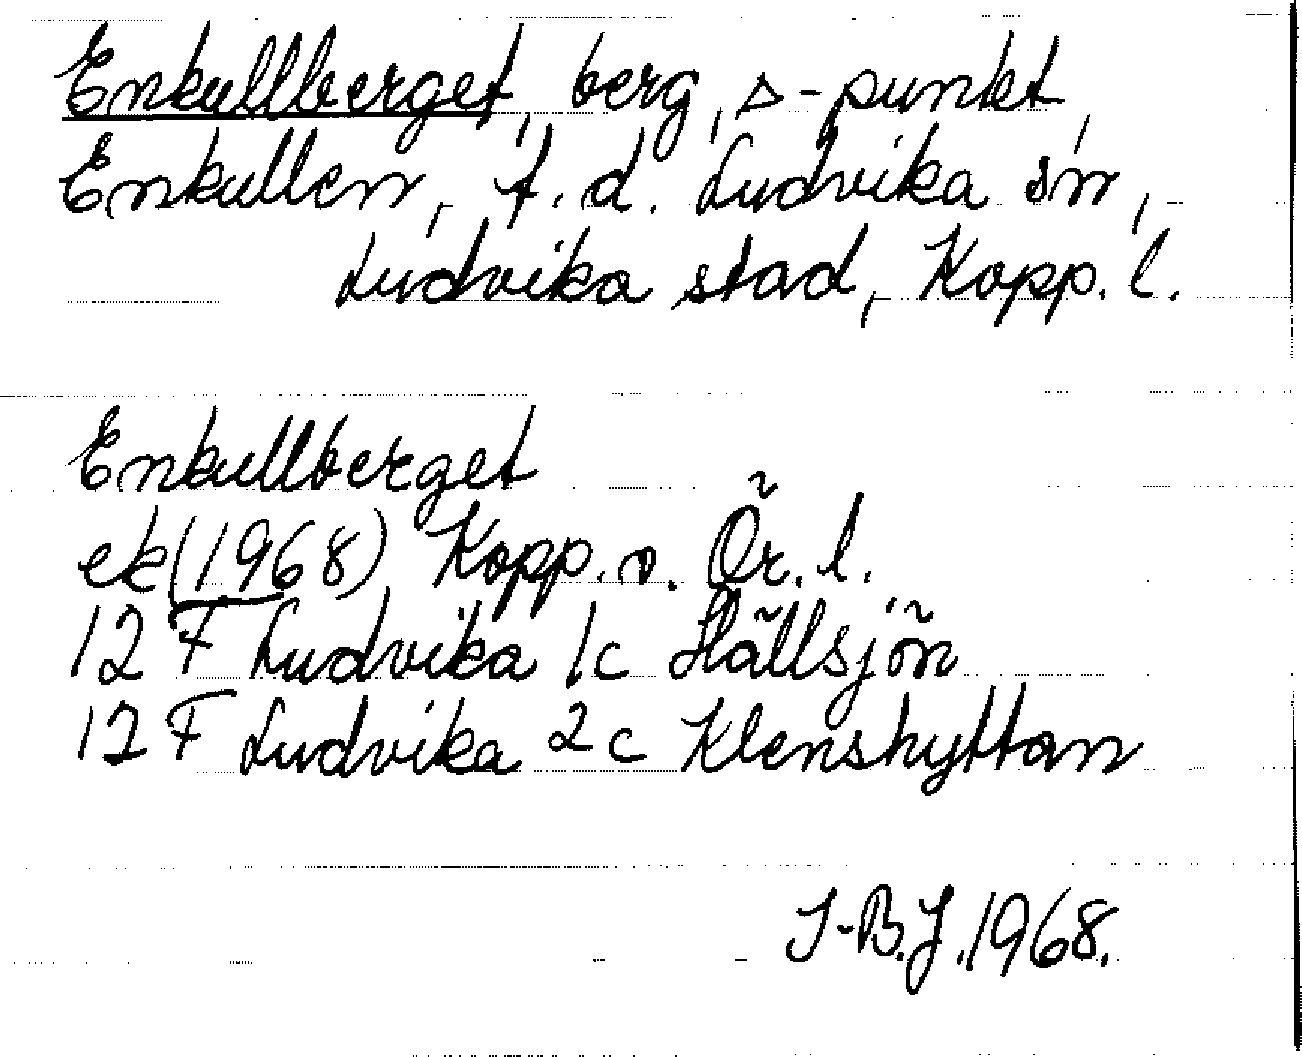 Enkullberget, berg, △-punkt,
Enkullen, f.d. Ludvika sn,
Ludvika stad, Kopp. l.
Enkullberget
ek (1968) Kopp. o. Ör. l.
12 F Ludvika 1c Hällsjön
12 F Ludvika 2c Klenshyttan
I-B.J. 1968.